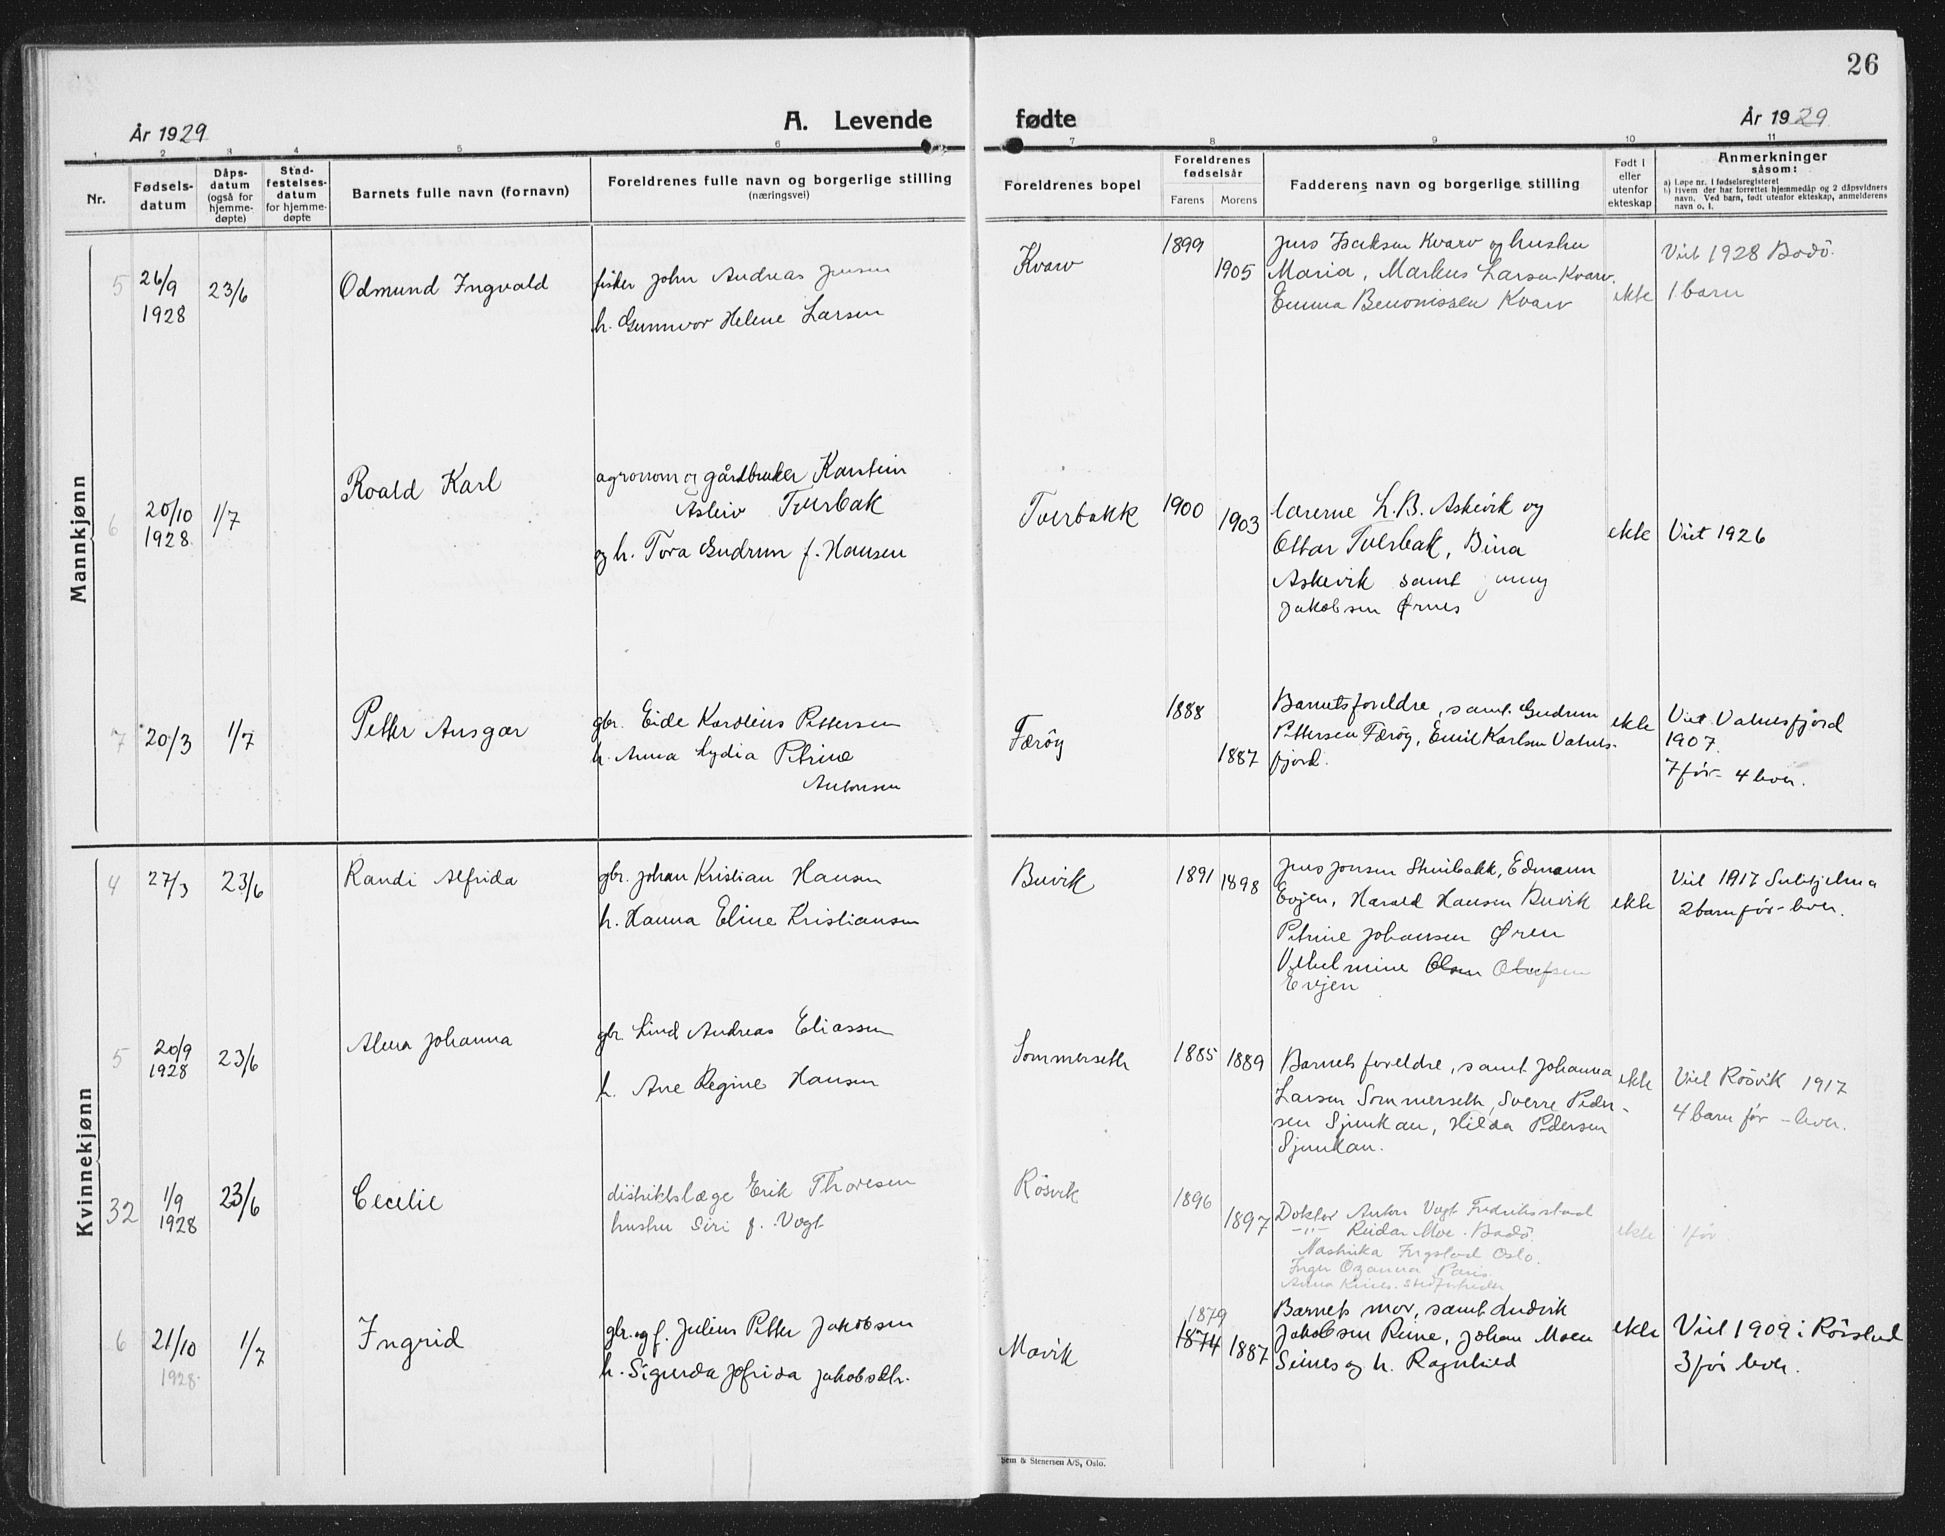 26
År 1929
A. Levende
fødte
År 1929
1 2 3 4 5 6 7 8 9 10 11
Nr.
Fødsels-
datum
Dåps-
datum
(også for
hjemme-
døpte)
Stad-
festelses-
datum
for hjemme-
døpte
Barnets fulle navn (fornavn)
Foreldrenes fulle navn og borgerlige stilling
(næringsvei)
Foreldrenes bopel
Foreldrenes
fødselsår
Farens Morens
Fadderens navn og borgerlige stilling
Født i
eller
utenfor
ekteskap
Anmerkninger
såsom:
a) Løpe nr. i fødselsregisteret
b) Hvem der har forrettet hjemmedåp og 2 dåpsvidners
navn. Ved barn, født utenfor ekteskap, anmelderens
navn o. l.
Mannkjønn
5
26/9
1928
23/6
Odmund Ingvald
fisker John Andreas Jensen
h. Gunnvor Helene Larsen
Kvarv
1899
1905
Jens Isaksen Kvarv og hustru
Maria, Markus Larsen Kvarv.
Emma Benonissen Kvarv
ekte
Viet 1928 Bodö.
1 barn
6
20/10
1928
1/7
Roald Karl
agronom og gårdbruker Karstein
Asleiv Tverbak
og h. Tora Gudrun f. Hansen
Tverbakk
1900
1903
lærerne L. B. Askevik og
Ottar Tverbak, Bina
Askevik samt Jenny
Jakobsen Ørnes
ekte
Viet 1926
7
20/3
1/7
Petter Ansgar
gbr. Eide Karolius Pettersen
h. Anna Lydia Petrine
Antonsen
Færöy
1888
1887
Barnets foreldre, samt Gudrun
Pettersen Færöy, Emil Karlsen Vatnes-
fjord.
ekte
Viet Vatnesfjord
1907.
7 før - 4 lever.
Kvinnekjønn
4
27/3
23/6
Randi Alfrida
gbr. Johan Kristian Hansen
h. Hanna Eline Kristiansen
Buvik
1891
1898
Jens Jensen Stenbakk, Edmann
Evjen, Harald Hansen Buvik
Petrine Johansen Øren
Vilhelmine Olsen Olufsen
Evjen
ekte
Viet 1917 Sulitjelma
2 barn før - lever.
5
20/9
1928
23/6
Alma Johanna
gbr. Lind Andreas Eliassen
h. Ane Regine Hansen
Sommerseth
1885
1889
Barnets foreldre, samt Johanna
Larsen Sommerseth, Sverre Peder-
sen Sjunkan, Hilda Pedersen
Sjunkan.
ekte
Viet Rösvik 1917
4 barn før - lever.
32
1/9
1928
23/6
Cecilie
distriktslæge Erik Thoresen
hustru Siri f. Vogt
Rösvik
1896
1897
Doktor Anton Vogt Fredriksstad
-"- Reidar Moe. Bodö.
Ingstad Oslo.
Inger Ozanna Paris.
Anna
ekte
1 før.
6
21/10
1928.
1/7
Ingrid
gbr. og f. Julius Petter Jakobsen
h. Sigurda Jofrida Jakobsdtr.
Mavik
1879
1874
1887
Barnets mor, samt Ludvik
Jakobsen Reine, Johan Moen
Seines og h. Ragnhild
ekte
Viet 1909 i Rösstad
3 før lever.
Sem & Stenersen A/S, Oslo.